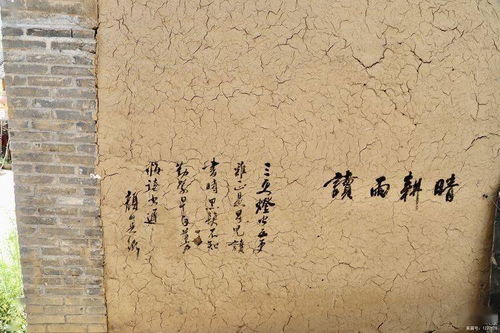 晴耕雨讀
三更燈火五更
雞正是男兒讀
書時黑髮不知
勤學早白首方
悔讀書遲
顏真卿